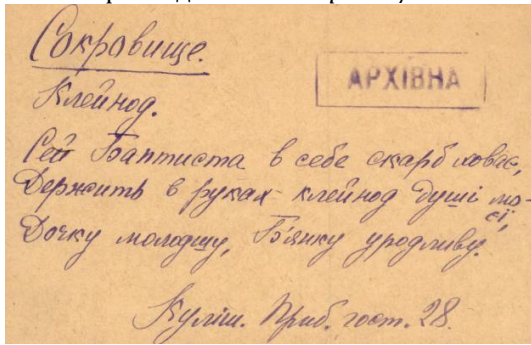 Сокровище.
АРХІВНА
Клейнод.
Сей Баптиста в себе скарб ховає,
Держить в руках клейнод душі мо-
єї,
Дочку молодшу, Б'янку уродливу.
Куліш. Приб. гост. 28.